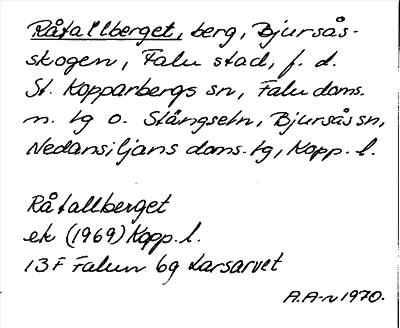 Råtallberget, berg, Bjursås-
skogen, Falu stad, f. d.
St. Kopparbergs sn, Falu doms.
m. tg o. Stängsetn, Bjursås sn,
Nedansiljans doms. tg, Kopp. l.
Råtallberget
ek (1969) Kopp. l.
13F Falun 6g Larsarvet
A.A-n 1970.